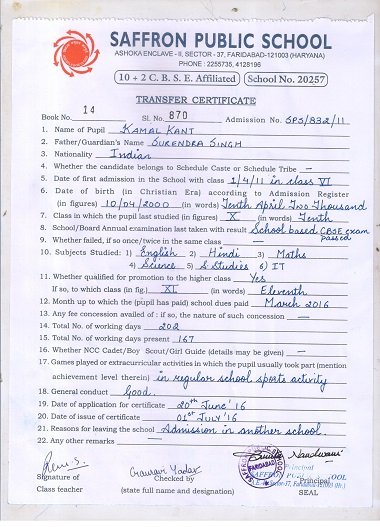 SAFFRON PUBLIC SCHOOL
ASHOKA ENCLAVE - II, SECTOR - 37, FARIDABAD-121003 (HARYANA)
PHONE : 2255735, 4128196
10 + 2 C. B. S. E. Affiliated School No. 20257
TRANSFER CERTIFICATE
Book No. 14 Sl. No. 870 Admission No. SPS/832/11
1. Name of Pupil KAMAL KANT
2. Father/Guardian's Name SURENDRA SINGH
3. Nationality Indian
4. Whether the candidate belongs to Schedule Caste or Schedule Tribe —
5. Date of first admission in the School with class 1/4/11 in class VI
6. Date of birth (in Christian Era) according to Admission Register
(in figures) 10/04/2000 (in words) Tenth April Two Thousand
7. Class in which the pupil last studied (in figures) X (in words) Tenth
8. School/Board Annual examination last taken with result School based CBSE exam passed
9. Whether failed, if so once/twice in the same class —
10. Subjects Studied: 1) English 2) Hindi 3) Maths
4) Science 5) S Studies 6) IT
11. Whether qualified for promotion to the higher class Yes
If so, to which class (in fig.) XI (in words) Eleventh
12. Month up to which the (pupil has paid) school dues paid March 2016
13. Any fee concession availed of : if so, the nature of such concession —
14. Total No. of working days 202
15. Total No. of working days present 167
16. Whether NCC Cadet/Boy Scout/Girl Guide (details may be given) —
17. Games played or extracurricular activities in which the pupil usually took part (mention
achievement level therein) in regular school sports activity
18. General conduct Good.
19. Date of application for certificate 20th June' 16
20. Date of issue of certificate 01st July '16
21. Reasons for leaving the school Admission in another school.
22. Any other remarks —
Gaurav Yadav
Signature of Checked by Principal
Class teacher (state full name and designation) SEAL